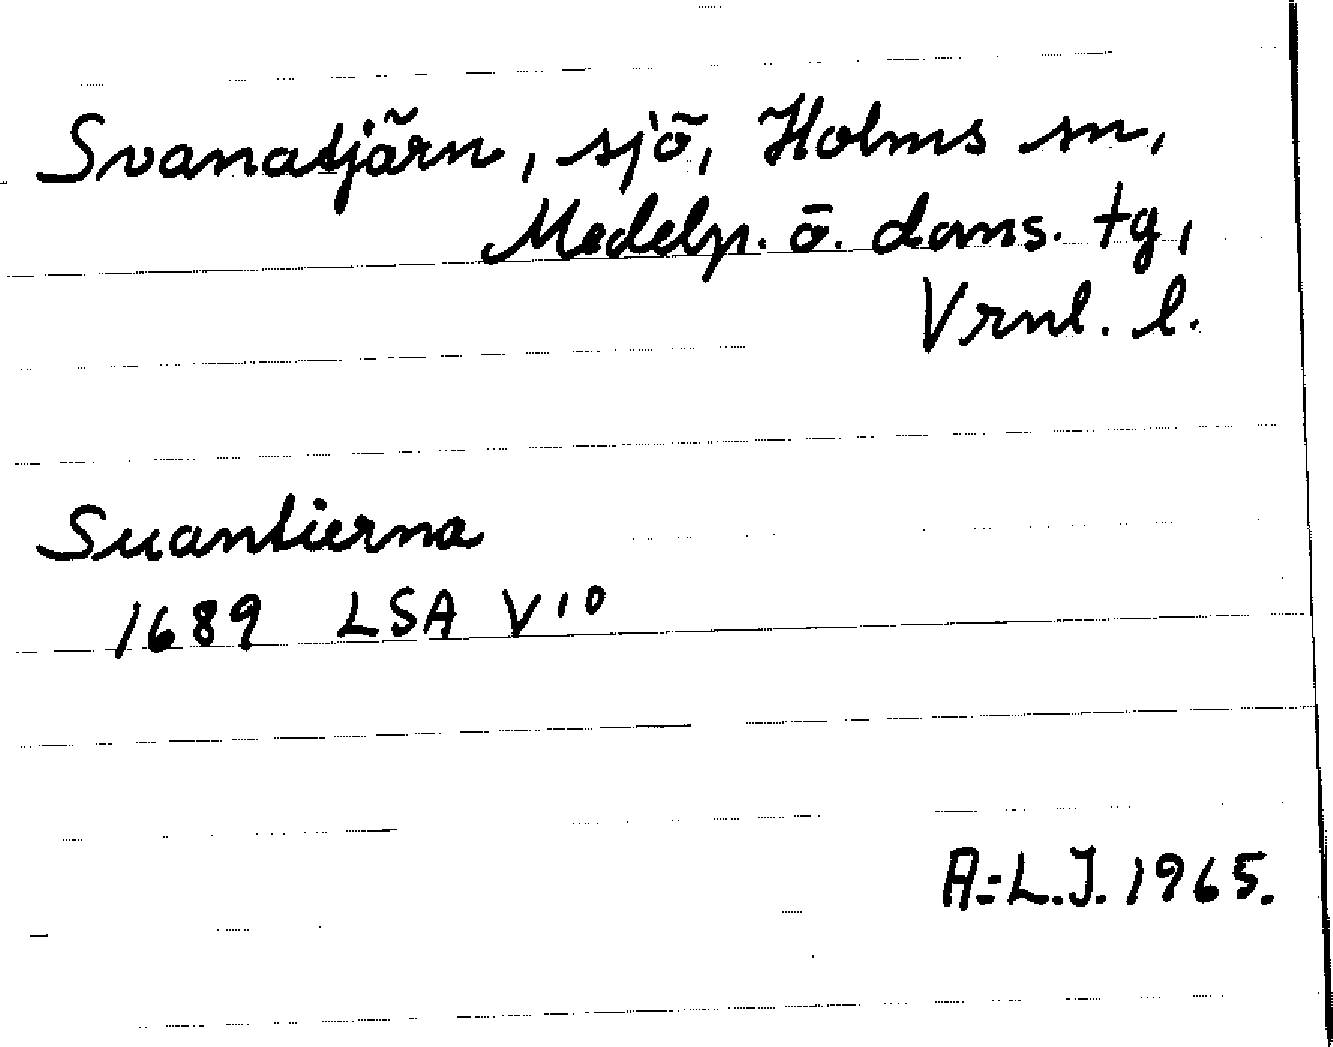 Svanatjärn, sjö, Holms sn,
Medelp. ö. doms. tg,
Vrnl. l.
Suantierna
1689 LSA V10
A.-L.J. 1965.